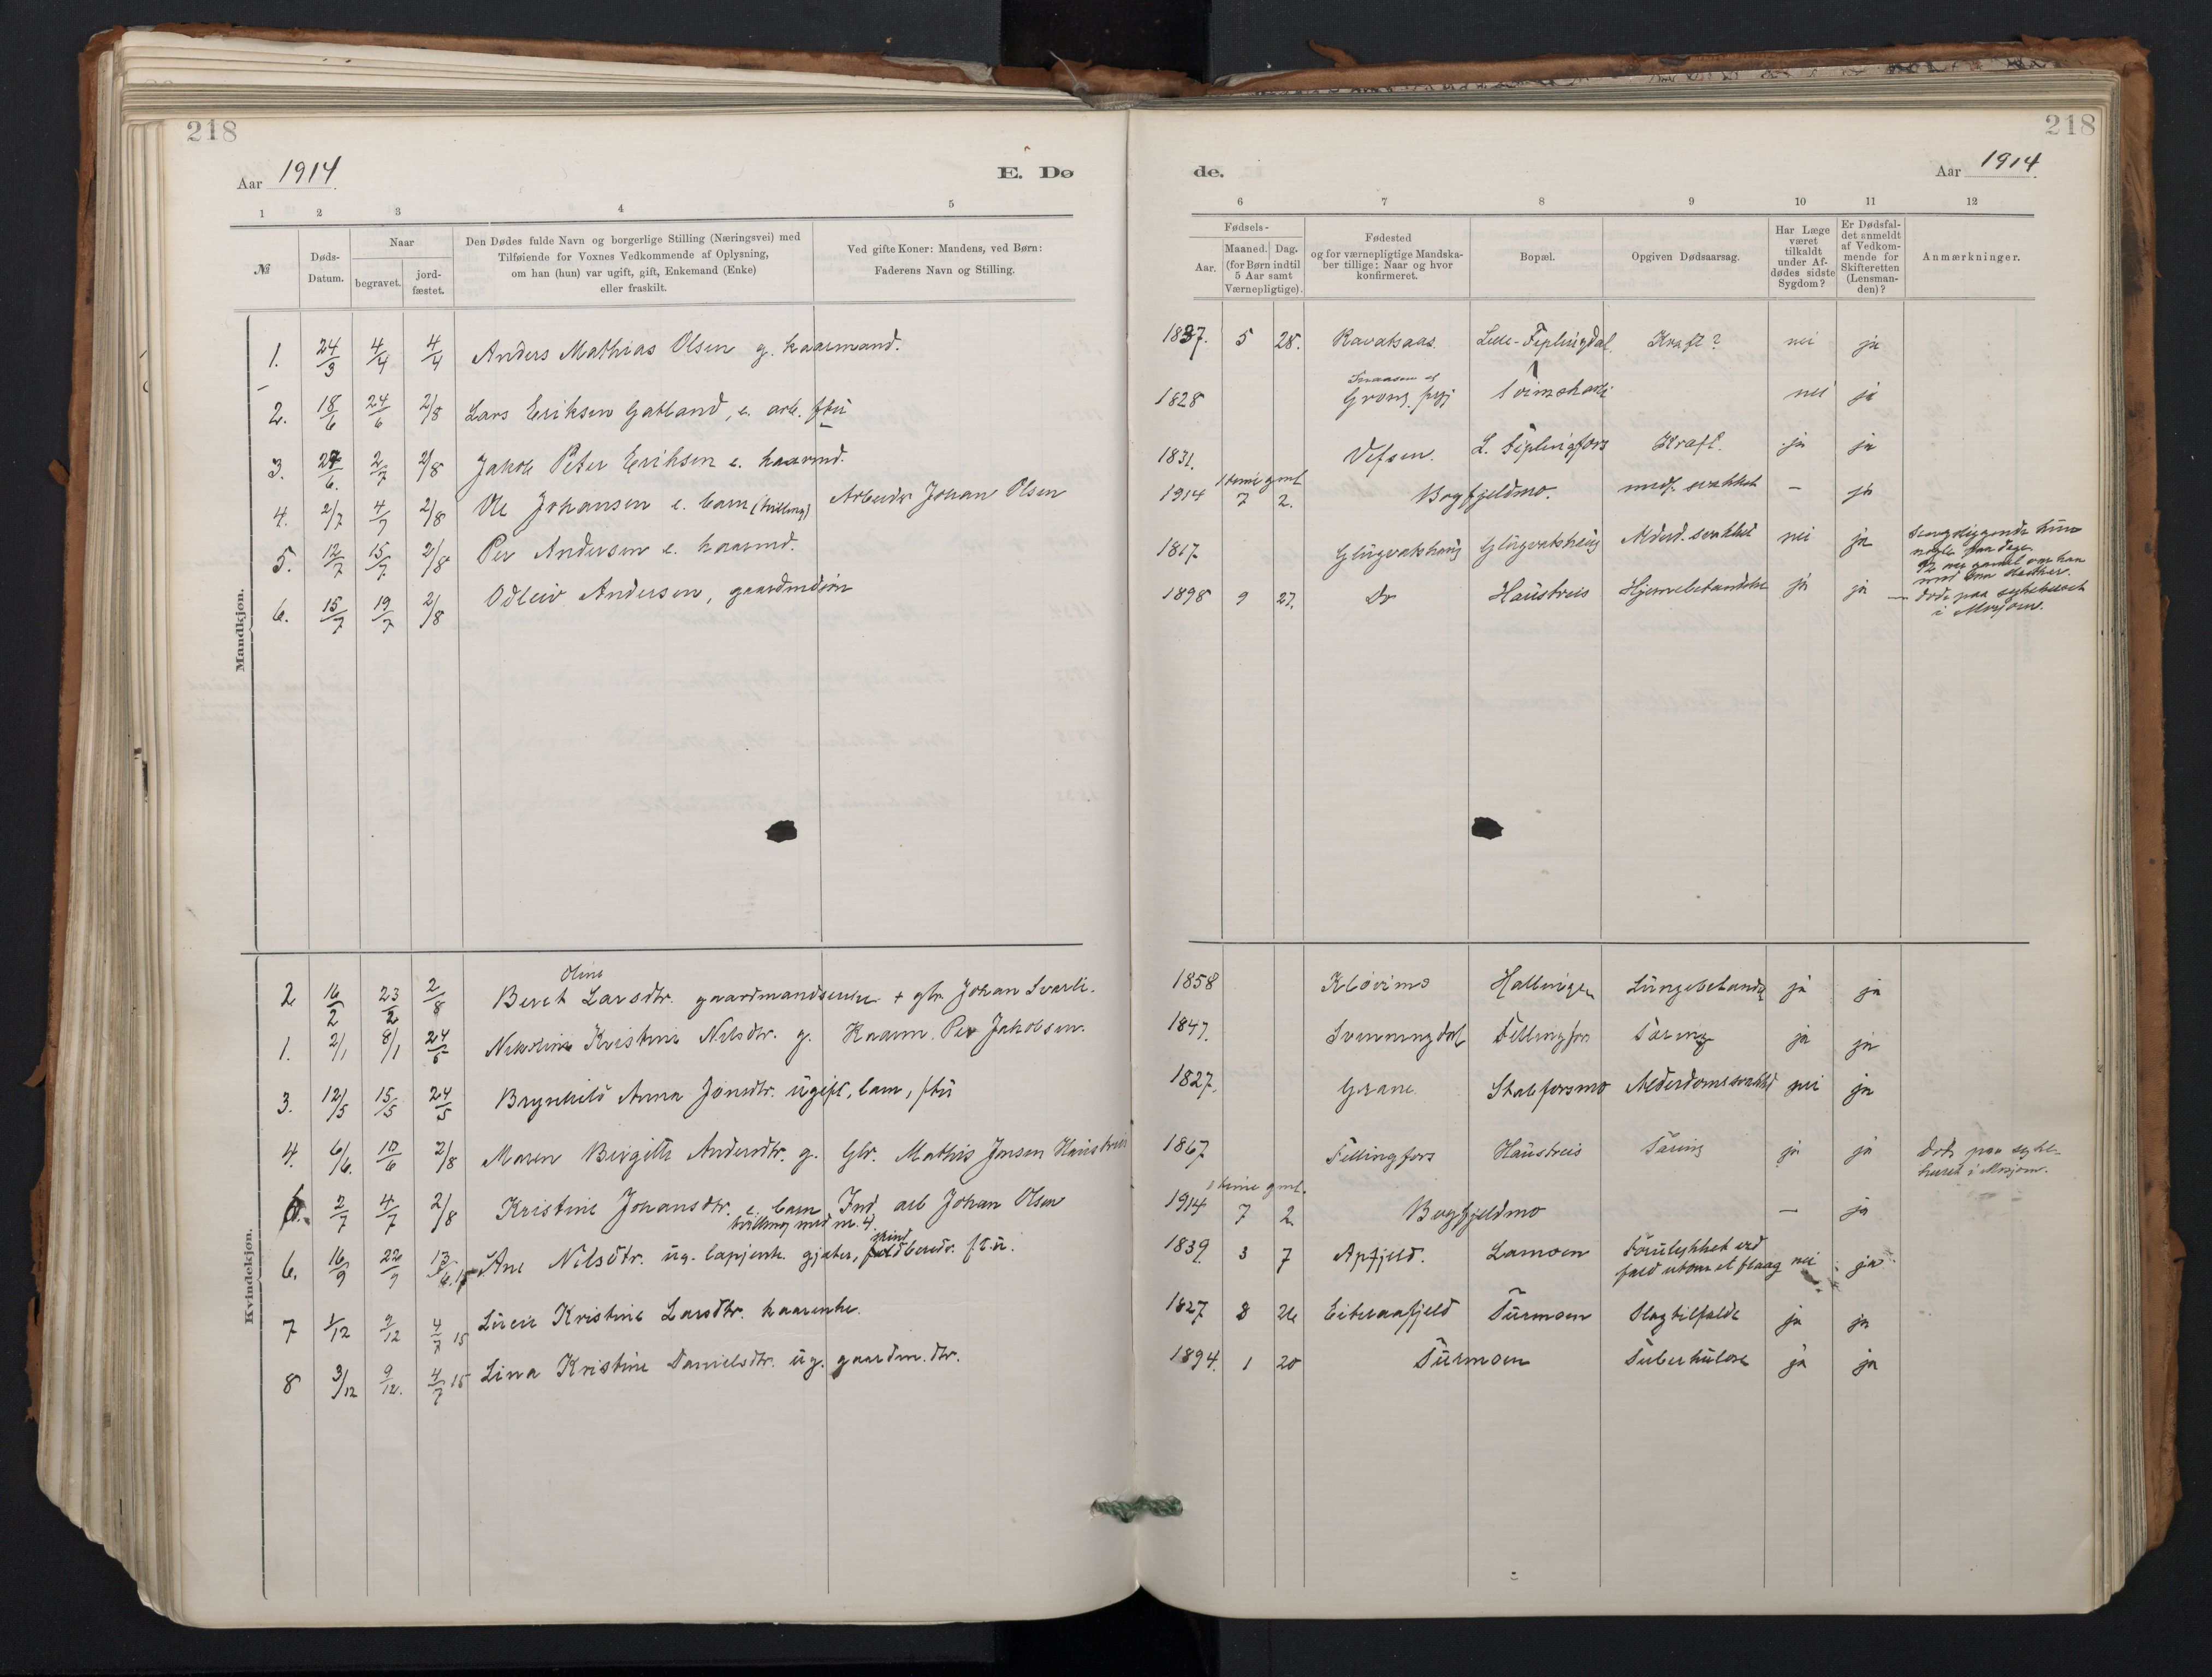 218
218
Aar 1914.
E. Dø
de.
Aar 1914.
1 2 3 4 5
6 7 8 9 10 11 12
№
Døds-Datum.
Naar
begravet.
jord-fæstet.
Den Dødes fulde Navn og borgerlige Stilling (Næringsvei) med
Tilføiende for Voxnes Vedkommende af Oplysning,
om han (hun) var ugift, gift, Enkemand (Enke)
eller fraskilt.
Ved gifte Koner: Mandens, ved Børn:
Faderens Navn og Stilling.
Fødsels-
Aar.
Maaned. Dag.
(for Børn indtil
5 Aar samt
Værnepligtige).
Fødested
og for værnepligtige Mandska-
ber tillige: Naar og hvor
konfirmeret.
Bopæl.
Opgiven Dødsaarsag.
Har Læge
været
tilkaldt
under Af-
dødes sidste
Sygdom?
Er Dødsfal-
det anmeldt
af Vedkom-
mende for
Skifteretten
(Lensman-
den)?
Anmærkninger.
Mandkjøn.
1. 24/3 4/4 4/4 Anders Mathias Olsen g. kaarmand. 1837. 5 28. Ravatsaas Lille-Fiplingdal. Kræft? nei ja
2. 18/6 24/6 2/8 Lars Eriksen Gatland, e. arb. ftu 1828 Grong nei ja
3. 27/6. 2/7 2/8 Jakob Peter Eriksen e. kaarmd. 1831. Vefsen. L. Fiplingfors Kræft. ja ja
4. 2/7 4/7 2/8 Ole Johansen e. barn (tvilling) Arbeider Johan Olsen 1914 1 time gml. 7 2. Bogfjeldmo. medf. svakhet — ja
5. 12/7 15/7 2/8 Per Andersen e. kaarmd. 1817. Glugvatshaug Glugvatshaug Alderd. svakhet nei ja Sengeliggende kun
nogle faa dage
6. 15/7 19/7 2/8 Odleiv Andersen, gaardmdsøn 1898 9 27. Do Haustreis Hjernebetændelse ja ja — døde paa sykehuset
i Mosjøen.
Kvindekjøn.
2 16/2 23/2 2/8 Beret Oline Larsdtr. gaardmandsenke + gbr. Johan Svarli. 1858 Kløvimo Hallingen Lungebetændelse ja ja
1. 2/1 8/1 24/5 Nikoline Kristine Nilsdtr. g. Kaarm. Per Jakobsen. 1847. Svenningdal Fellingfors Tæring ja ja
3. 12/5 15/5 24/5 Brynhild Anna Jonsdtr. ugift, lam, ftu 1827. Grane Stabforsmo Alderdomssvakhed nei ja
4. 6/6. 10/6 2/8 Maren Birgitte Andersdtr. g. Gbr. Mathis Jonsen Haustreis 1867 Fellingfors Haustreis Tæring ja ja Døde paa syke-
huset i Mosjøen.
5. 2/7 4/7 2/8 Kristine Johansdtr. e. barn Ind. arb Johan Olsen 1914 1 time gml. 7 2 Bogfjeldmo — ja
tvilling med nr. 4.
6. 16/9 22/9 13/6.15 Ane Nilsdtr. ug. lapjente gjæter, skindbereder. f.t.u. 1839. 3 7 Apfjeld. Lamoen Forulykket ved
fald utom et flaag nei ja
7 1/12 9/12 4/7 15 Lucie Kristine Larsdtr. kaarenke. 1827 8 26 Eiteraafjeld Turmoen Slagtilfælde ja ja
8 3/12 9/12. 4/7 15 Lina Kristine Danielsdtr. ug. gaardm. dtr. 1894. 1 20 Turmoen Tuberkulose ja ja